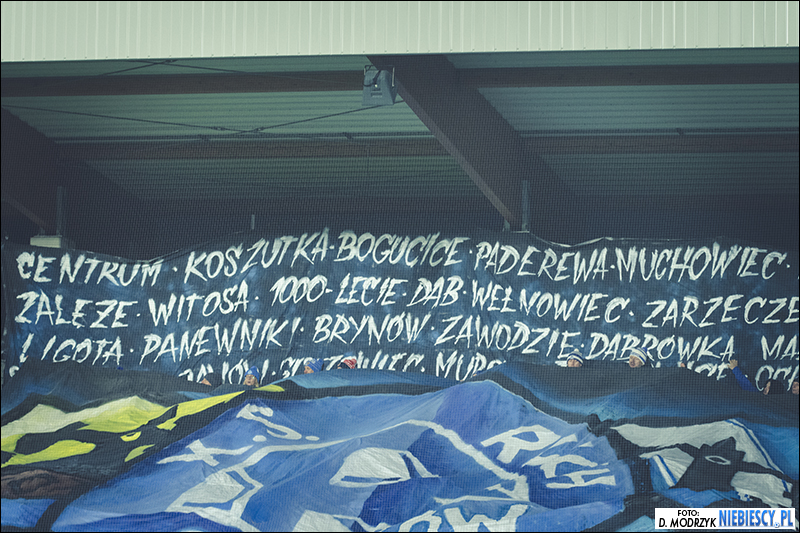 CENTRUM · KOSZUTKA · BOGUCICE · PADEREWA · MUCHOWIEC ·
ZAŁĘŻE · WITOSA · 1000-LECIE · DĄB · WEŁNOWIEC · ZARZECZE
LIGOTA · PANEWNIKI · BRYNÓW · ZAWODZIE · DĄBRÓWKA MA
K.S.
RCH
ÓW
FOTO:
D. MODRZYK NIEBIESCY.PL